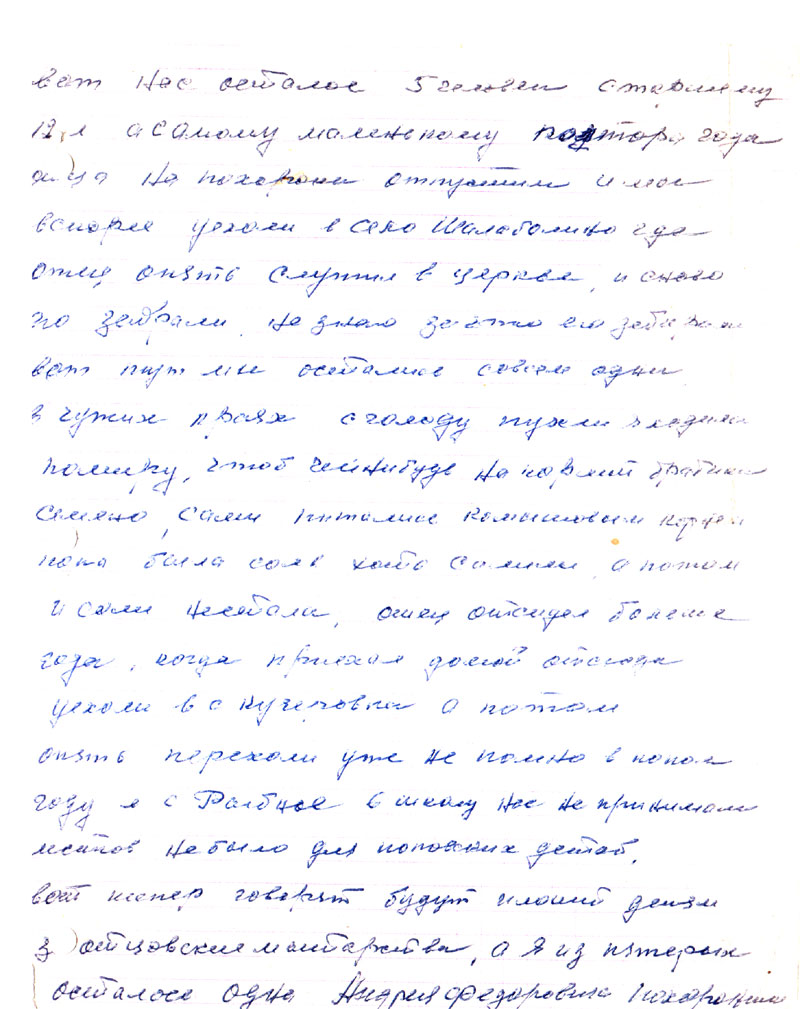 вот нас осталос 5 человек старшему
12 л а самому маленькому полтора года
отца на похороны отпустили и мы
вскоре уехали в село Шалаболино где
отец опять служил в церкве, и снова
по забрали, не знаю за что его забирали
вот тут мы остались совсем одни
в чужих краях с голоду пухли ходили
помиру, чтоб чемнибудь накормит братика
Семена, сами питались камышовым корнем
пока была соль хотя солили, а потом
и соли нестала, отец отсидел больше
года, когда приехал домой отсюда
уехали в с кучеровка а потом
опять перехали уже не помню в каком
году в с Рыбное в школу нас не принимали
местов небыло для поповских детей,
вот тепер говорят будут платит детям
за отцовские мытарства, а я из пятерых
осталось одна Андрея Федоровича похоронили